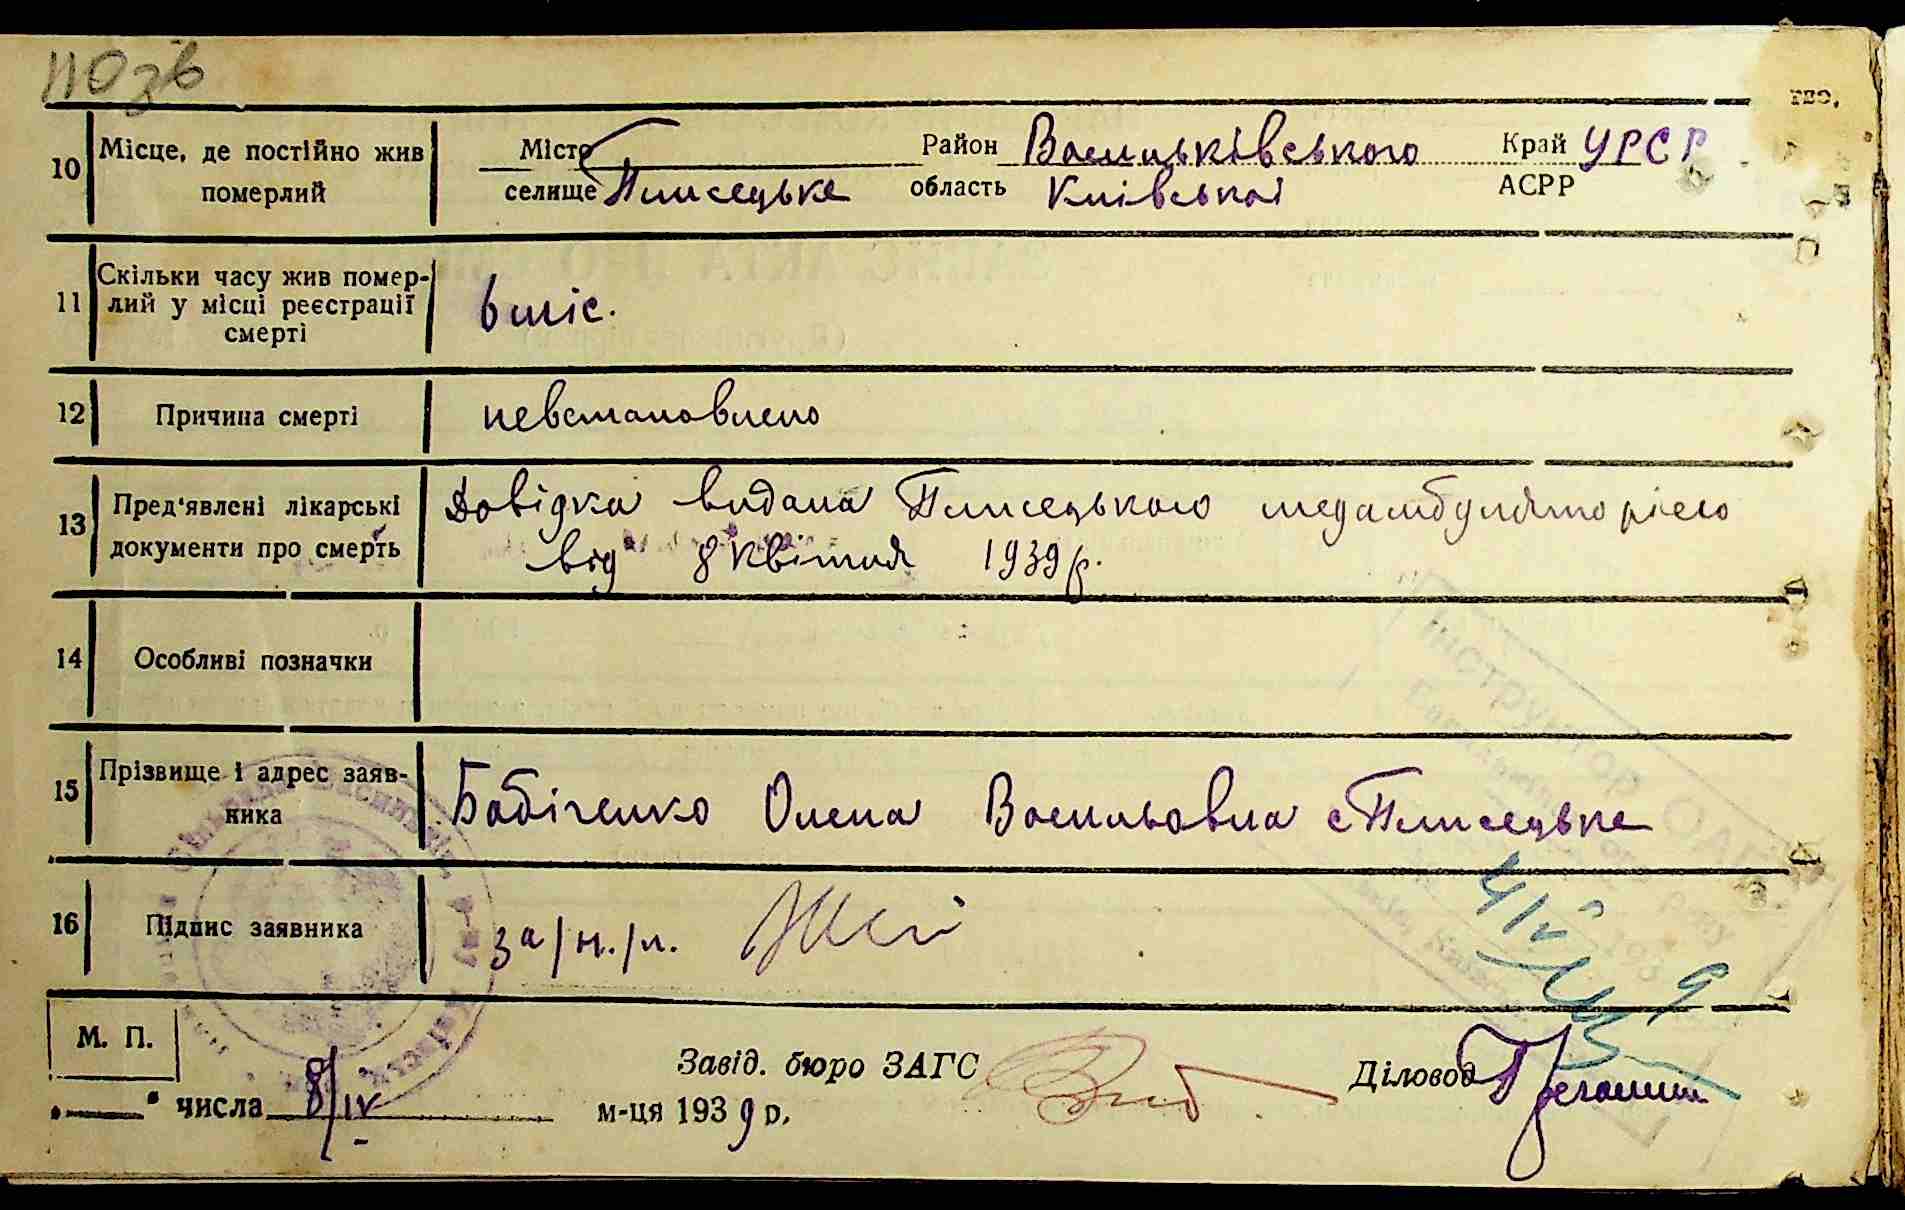 110 зв
10 Місце, де постійно жив померлий
Місто Район Васильківського Край УРСР
селище Плисецьке область Київської АСРР
11 Скільки часу жив помер-
лий у місці реєстрації
смерті
6 міс.
12 Причина смерті невстановлено
13 Пред'явлені лікарські Довідка видана Плисецькою медамбуляторією
документи про смерть від 8 квітня 1939 р.
14 Особливі позначки
15 Прізвище і адрес заяв-
ника
Бабіченко Олена Васильовна с Плисецьке
16 Підпис заявника за/н./п.
М. П.
Завід. бюро ЗАГС Діловод
" " числа 8/IV м-ця 1939 р.
Інструктор ОАГС